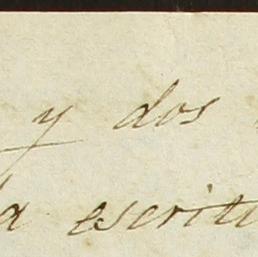 y dos
la escritu